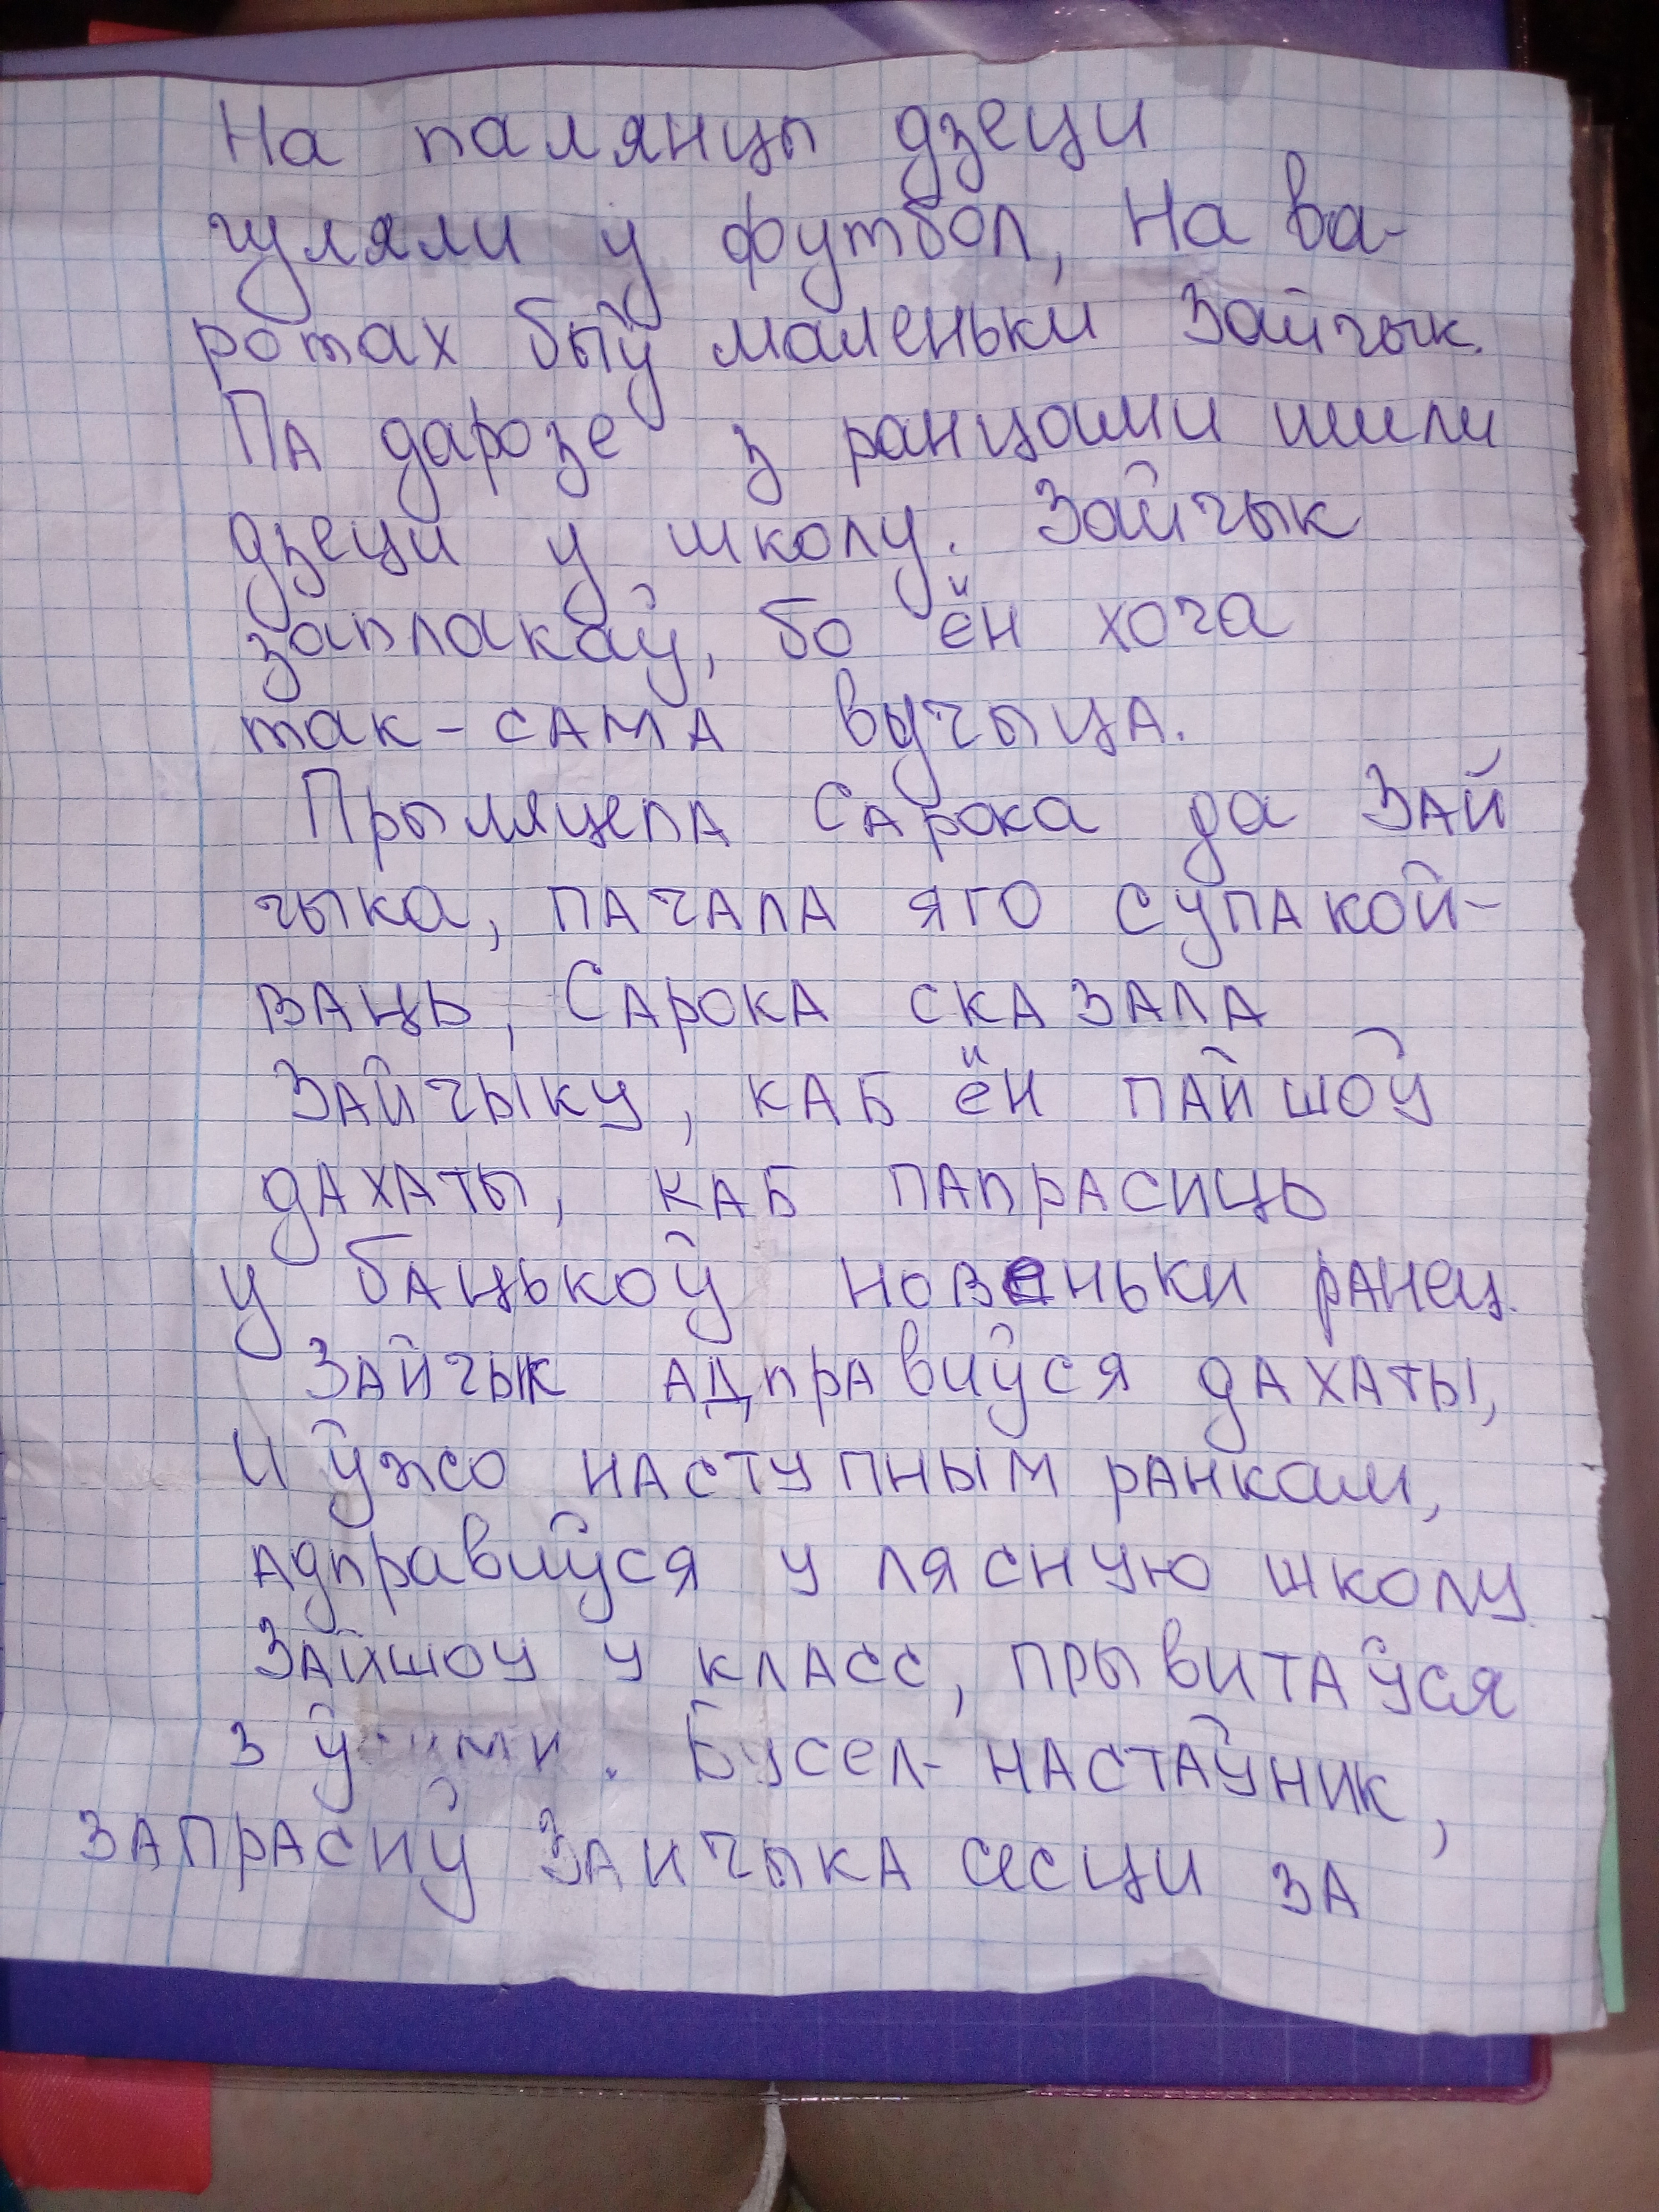 На палянцы дзеци
гуляли у футбол, На ва-
ротах быў маленьки Зайчык.
Па дарозе з ранцами шили
дзеци у школу. Зайчык
заплакаў, бо ён хоча
так-сама вучыца.
Прыляцела Сарока да Зай
чыка, пачала яго супакой-
ваць, Сарока сказала
Зайчыку, каб ён пайшоў
дахаты, каб папрасиць
у бацькоў новеньки ранец.
Зайчык адправиўся дахаты,
И ўжо наступным ранкам,
адправиўся у лясную школу
Зайшоу у класс, прывитаўся
з . Бусел-настаўник,
запрасиў Заичыка сесци за